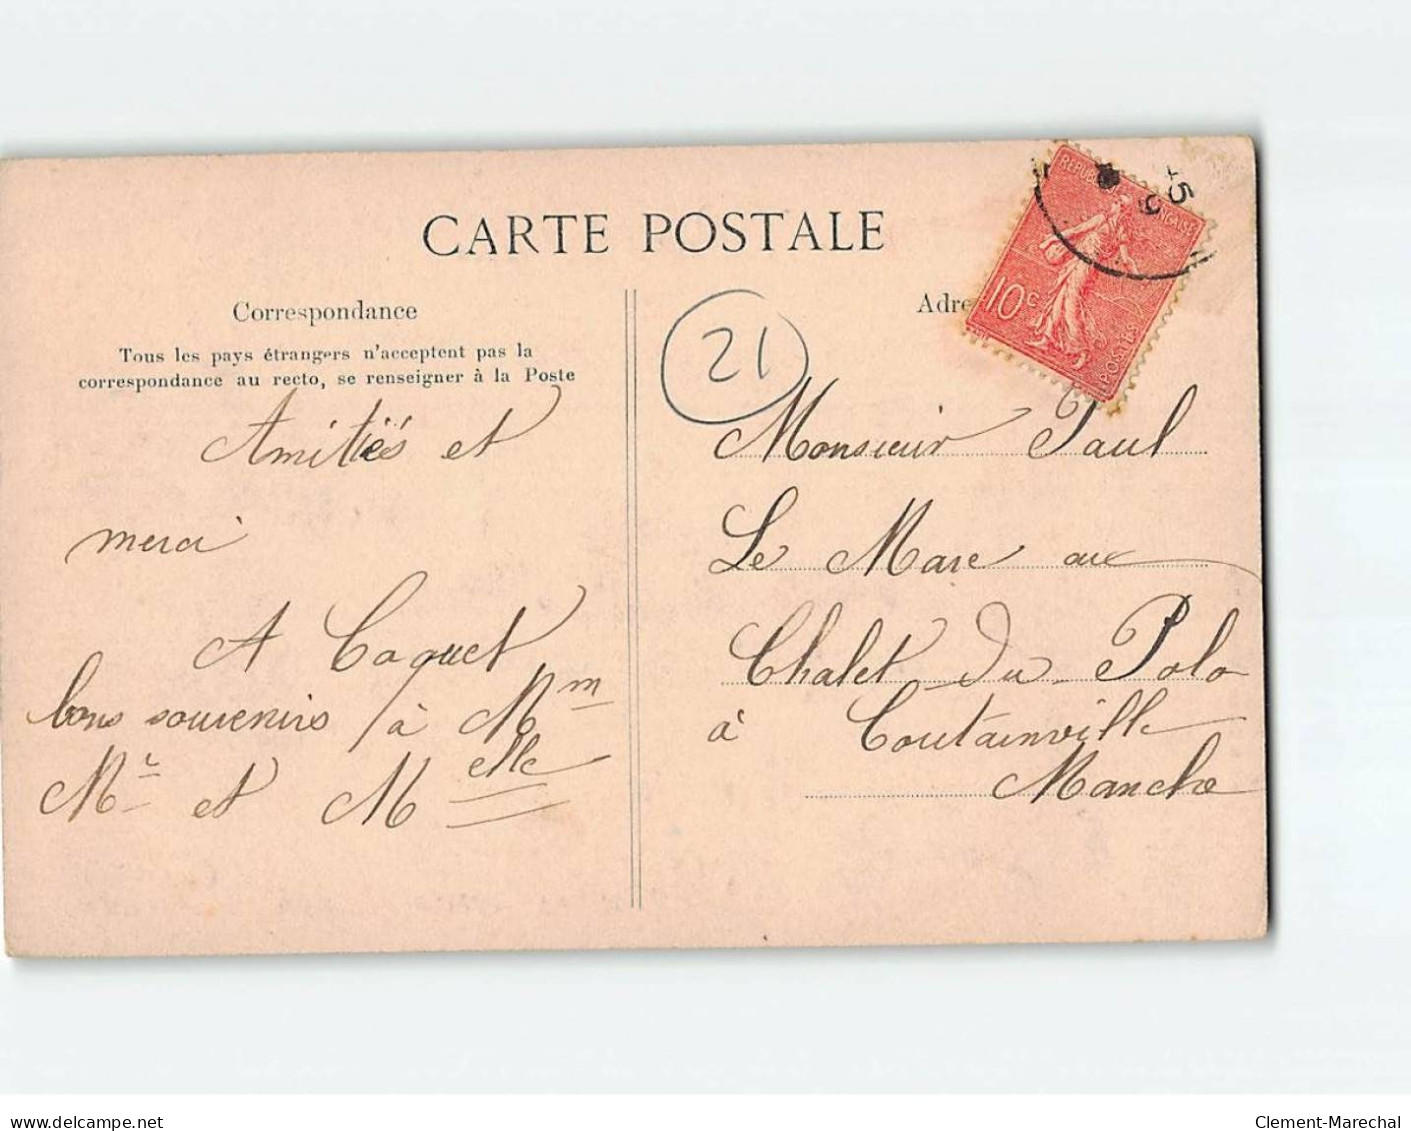 CARTE POSTALE
Correspondance
Tous les pays étrangers n'acceptent pas la
correspondance au recto, se renseigner à la Poste
Amitiés et
merci
A Coquet
bons souvenirs à Mm
Mr et Melle
Adre
21
REPUBLIQUE FRANÇAISE
10c
POSTES
Monsieur Paul
Le Mare aux
Chalet du Polo
à Coutainville
Manche
www.delcampe.net
Clement-Marechal